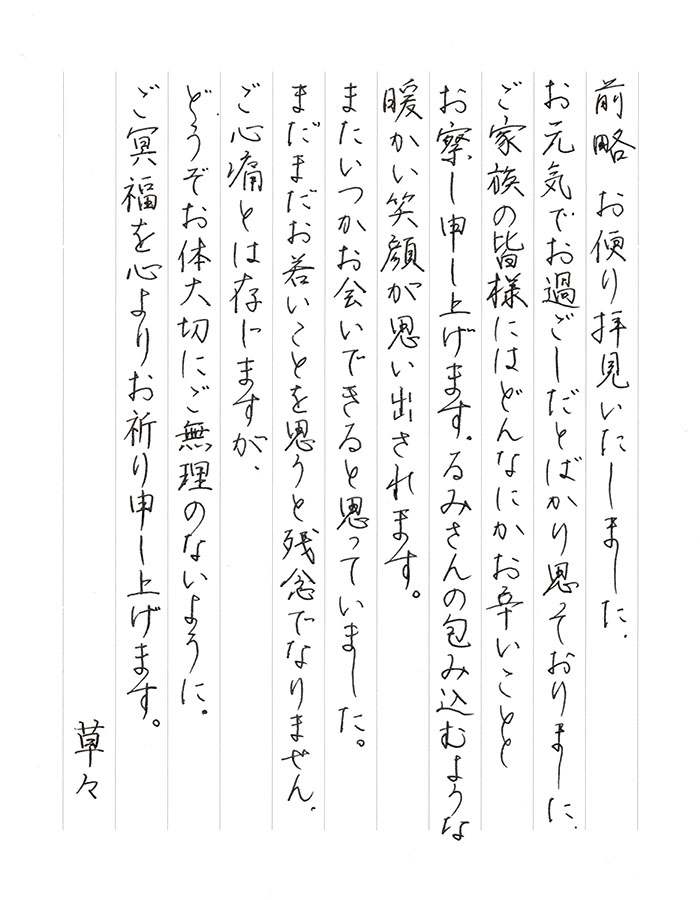 前略 お便り拝見いたしました.
お元気でお過ごしだとばかり思っておりました.
ご家族の皆様にはどんなにかお辛いことと
お察し申し上げます。るみさんの包み込むような
暖かい笑顔が思い出されます。
またいつかお会いできると思っていました。
まだまだお若いことを思うと残念でなりません.
ご心痛とは存じますが、
どうぞお体大切にご無理のないように。
ご冥福を心よりお祈り申し上げます。
草々